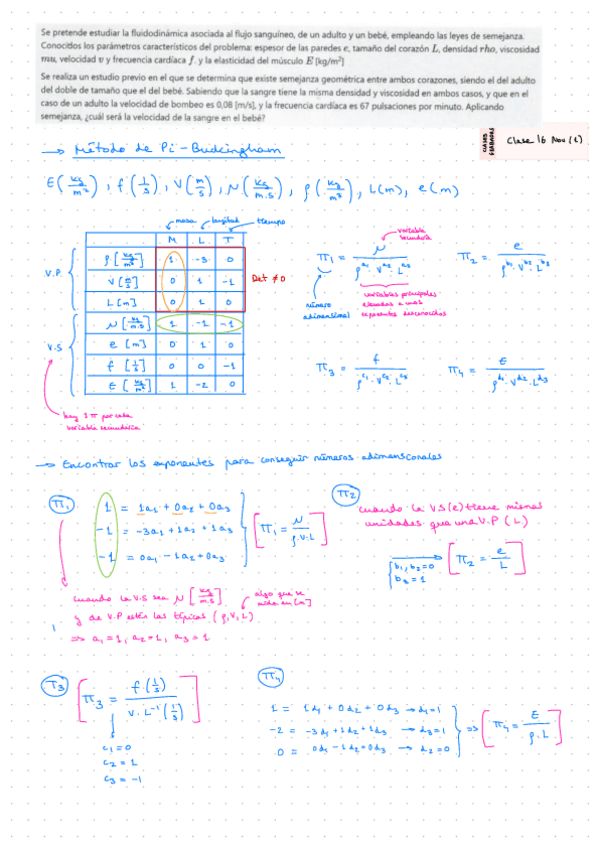 Se pretende estudiar la fluidodinámica asociada al flujo sanguíneo, de un adulto y un bebé, empleando las leyes de semejanza.
Conocidos los parámetros característicos del problema: espesor de las paredes e, tamaño del corazón L, densidad rho, viscosidad
mu, velocidad v y frecuencia cardíaca f. y la elasticidad del músculo E [kg/m²]
Se realiza un estudio previo en el que se determina que existe semejanza geométrica entre ambos corazones, siendo el del adulto
del doble de tamaño que el del bebé. Sabiendo que la sangre tiene la misma densidad y viscosidad en ambos casos, y que en el
caso de un adulto la velocidad de bombeo es 0,08 [m/s], y la frecuencia cardíaca es 67 pulsaciones por minuto. Aplicando
semejanza, ¿cuál será la velocidad de la sangre en el bebé?
Clase 16 Nov (2)
→ Método de Pi-Buckingham
E(kg/m²), f(1/s), V(m/s), μ(kg/m.s), ρ(kg/m³), L(m), e(m)
masa longitud tiempo
M L T
V.P
ρ[kg/m³] 1 -3 0
V[m/s] 0 1 -1
L[m] 0 1 0
Det ≠ 0
V.S
μ[kg/m.s] 1 -1 -1
e [m] 0 1 0
f [1/s] 0 0 -1
E [kg/m²] 1 -2 0
hay 1 π por cada
variable secundaria
variable
secundaria
π1 = μ / ρ^a1 · V^a2 · L^a3
π2 = e / ρ^b1 · V^b2 · L^b3
número
adimensional
variables principales
elevadas a unos
exponentes desconocidos
π3 = f / ρ^c1 · V^c2 · L^c3
π4 = E / ρ^d1 · V^d2 · L^d3
→ Encontrar los exponentes para conseguir números adimensionales
π1
1 = 1a1 + 0a2 + 0a3
-1 = -3a1 + 1a2 + 1a3
-1 = 0a1 - 1a2 + 0a3
[π1 = μ / ρ.V.L]
cuando la V.S sea μ [kg/m.s]
y de V.P estén las típicas (ρ, V, L)
algo que se
mida en [m]
=> a1 = 1, a2 = 1, a3 = 1
π2
cuando la VS(e) tiene mismas
unidades que una V.P (L)
b1, b2 = 0
b3 = 1
[π2 = e / L]
π3
[π3 = f.(1/s) / V.L⁻¹(1/s)]
c1 = 0
c2 = 1
c3 = -1
π4
1 = 1d1 + 0d2 + 0d3 → d1 = 1
-2 = -3d1 + 1d2 + 1d3 → d3 = 1
0 = 0d1 - 1d2 + 0d3 → d2 = 0
=> [π4 = E / ρ.L]